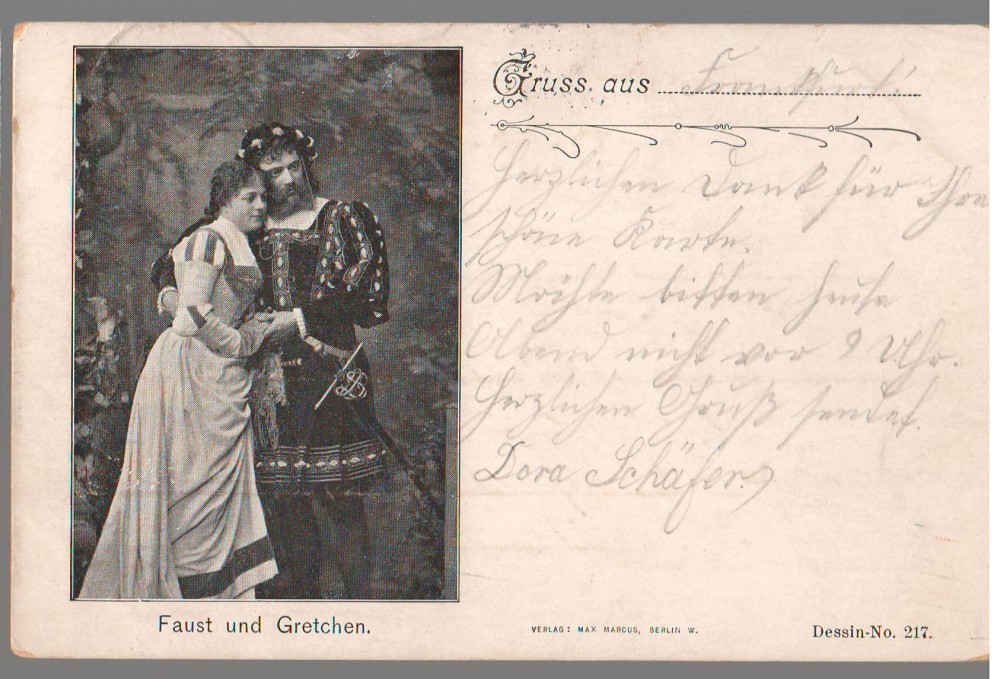 Gruss aus Frankfurt.
Herzlichen Dank für Ihre
schöne Karte.
Möchte bitten heute
Abend nicht vor 9 Uhr.
Herzlichen Gruß sendet
Dora Schäfer.
Faust und Gretchen.
VERLAG: MAX MARCUS, BERLIN W.
Dessin-No. 217.